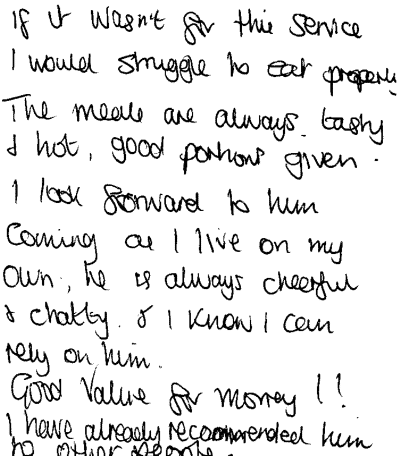 If it wasn't for this service
I would struggle to eat properly
The meals are always tasty
& hot, good portions given.
I look forward to him
Coming as I live on my
own, he is always cheerful
& chatty. & I know I can
rely on him.
Good Value for money !!
I have already recommended him
to other people.